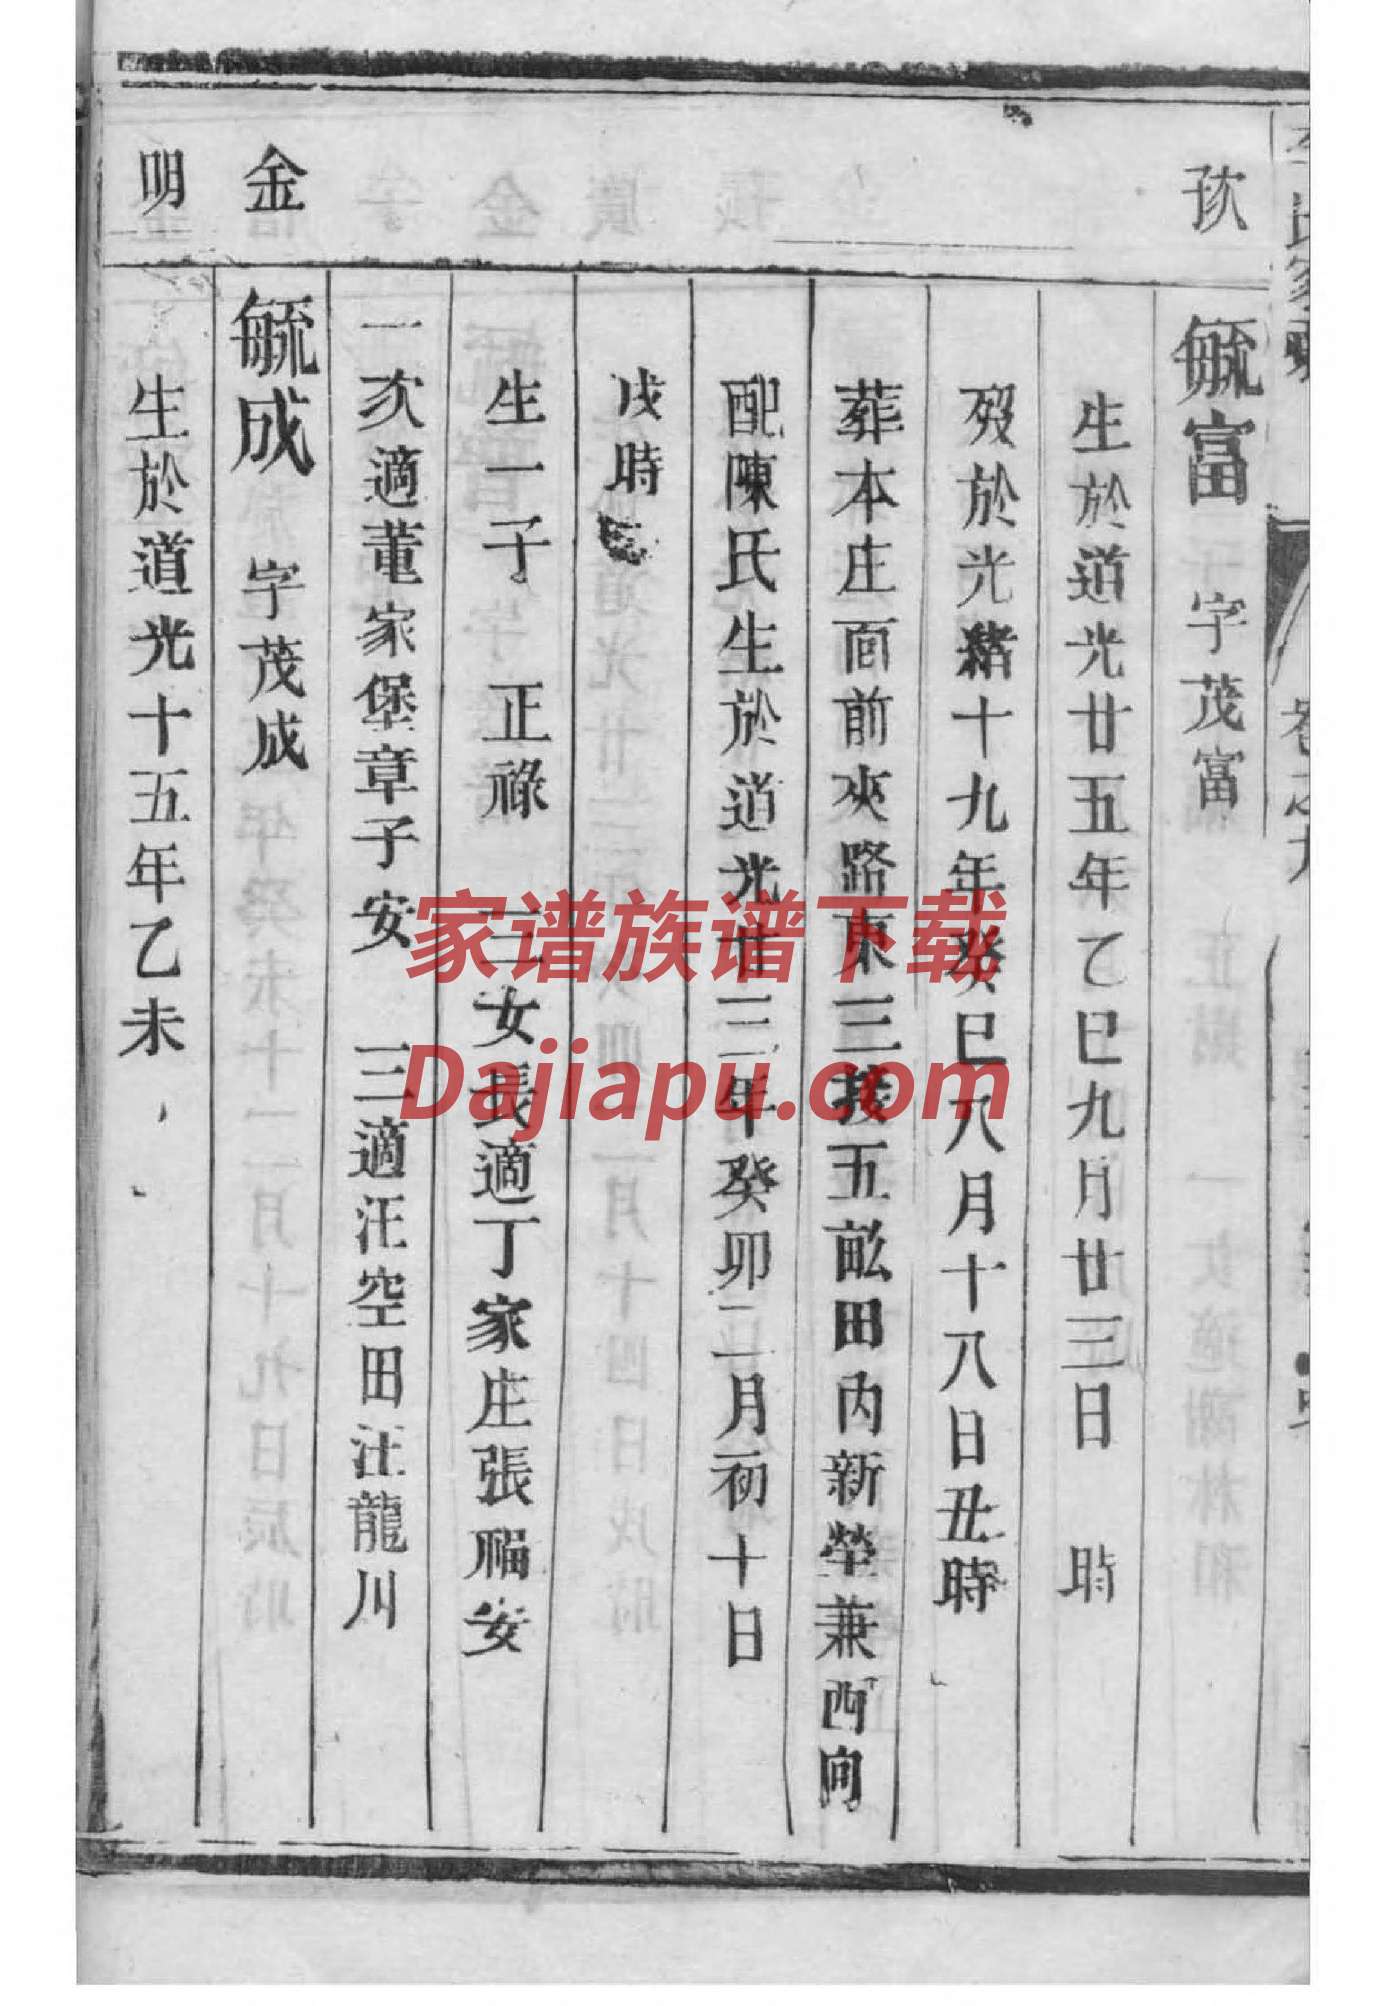 卷之九
㺹
毓富 字茂富
生於道光廿五年乙巳九月廿三日 時
歿於光緒十九年癸巳八月十八日丑時
葬本庄面前夾路東三㧞五畝田內新塋兼西向
配陳氏生於道光廿三年癸卯二月初十日
戌時
生一子 正祿 三女長適丁家庄張福安
一次適董家堡章子安 三適汪空田汪龍川
金
毓成 字茂成
明
生於道光十五年乙未
家谱族谱下载
Dajiapu.com